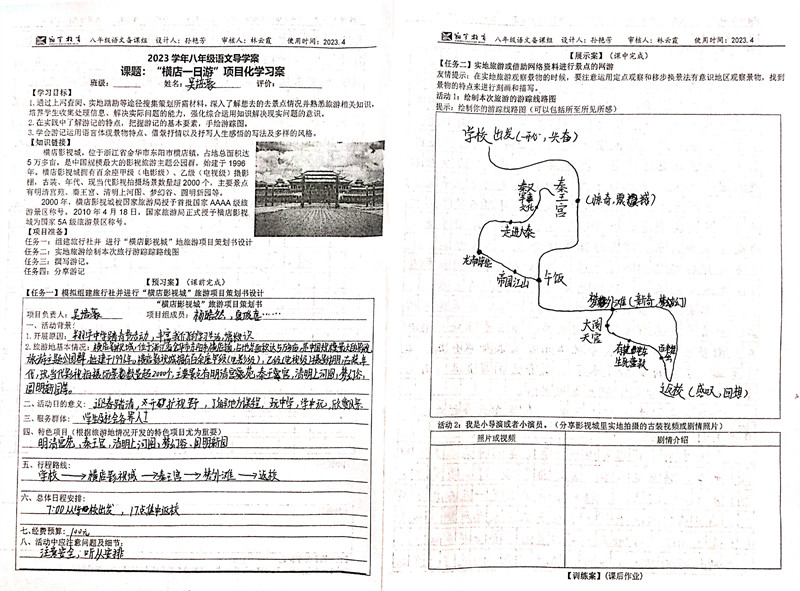 翔宇教育 八年级语文备课组 设计人：孙艳芳 审核人：林云霞 使用时间：2023.4
2023学年八年级语文导学案
课题：“横店一日游”项目化学习案
班级： 姓名： 评价：
【学习目标】
1.通过上网查阅、实地踏勘等途径搜集策划所需材料，深入了解想去的去景点情况并熟悉旅游相关知识，
培养学生收集处理信息、解决实际问题的能力，强化综合运用知识解决现实问题的意识。
2.在实践中了解游记的特点，把握游记的基本要素，手绘游踪图。
3.学会游记运用语言体现景物特点、借景抒情以及抒写人生感悟的写法及多样的风格。
【知识链接】
横店影视城，位于浙江省金华市东阳市横店镇，占地总面积达
5万多亩，是中国规模最大的影视旅游主题公园群，始建于1996
年。横店影视城拥有百余座甲级（电影级）、乙级（电视级）摄影
棚，古装、年代、现当代影视拍摄场景数量超2000个，主要景点
有明清宫苑、秦王宫、清明上河图、梦幻谷、圆明新园等。
2000年，横店影视城被国家旅游局授予首批国家AAAA级旅
游景区称号。2010年4月18日，国家旅游局正式授予横店影视
城为国家5A级旅游景区称号。
【项目准备】
任务一：组建旅行社并 进行“横店影视城”地旅游项目策划书设计
任务二：实地旅游绘制本次旅行游踪踪路线图
任务三：撰写游记。
任务四：分享游记
【预习案】（课前完成）
【任务一】模拟组建旅行社并进行“横店影视城”旅游项目策划书设计
“横店影视城”旅游项目策划书
项目负责人： 项目组成员：
一、活动背景：
1.开展原因：
2.旅游地基本情况：横店影视城，位于浙江省金华市东阳市横店镇，占地总面积达5万多亩，是中国规模最大的影视
旅游主题公园群，始建于1996年。横店影视城拥有百余座甲级（电影级），乙级（电视级）摄影棚，古装，年
代，现当代影视拍摄场景数量超2000个，主要景点有明清宫苑，秦王宫，清明上河图，梦幻谷，
圆明新园等。
二、活动日的意义：
三、服务群体：
四、特色项目（根据旅游地情况开发的特色项目尤为重要）
明清宫苑，秦王宫，清明上河图，梦幻谷，圆明新园
五、行程路线：
学校→横店影视城→秦王宫→梦外滩→返校
六、总体日程安排：
7:00从学校出发，17点集中返校
七、经费预算：100元
八、活动中应注意问题及细节：
注意安全，听从安排
翔宇教育 八年级语文备课组 设计人：孙艳芳 审核人：林云霞 使用时间：2023.4
【展示案】（课中完成）
【任务二】实地旅游或借助网络资料进行景点的网游
友情提示：在实地旅游观察景物的时候，要注意运用定点观察和移步换景法有意识地区观察景物，找到
景物的特点来进行刻画和描写。
活动1：绘制本次旅游的游踪线路图
提示：绘制你的游踪线路图（可以包括所至所见所感）
学校出发（开心，兴奋）
秦王宫
（惊奇，震撼）
走进大秦
帝国江山
午饭
大闹
天宫
返校（感叹，回想）
活动2：我是小导演或者小演员。（分享影视城里实地拍摄的古装视频或剧情照片）
照片或视频 剧情介绍
【训练案】（课后作业）